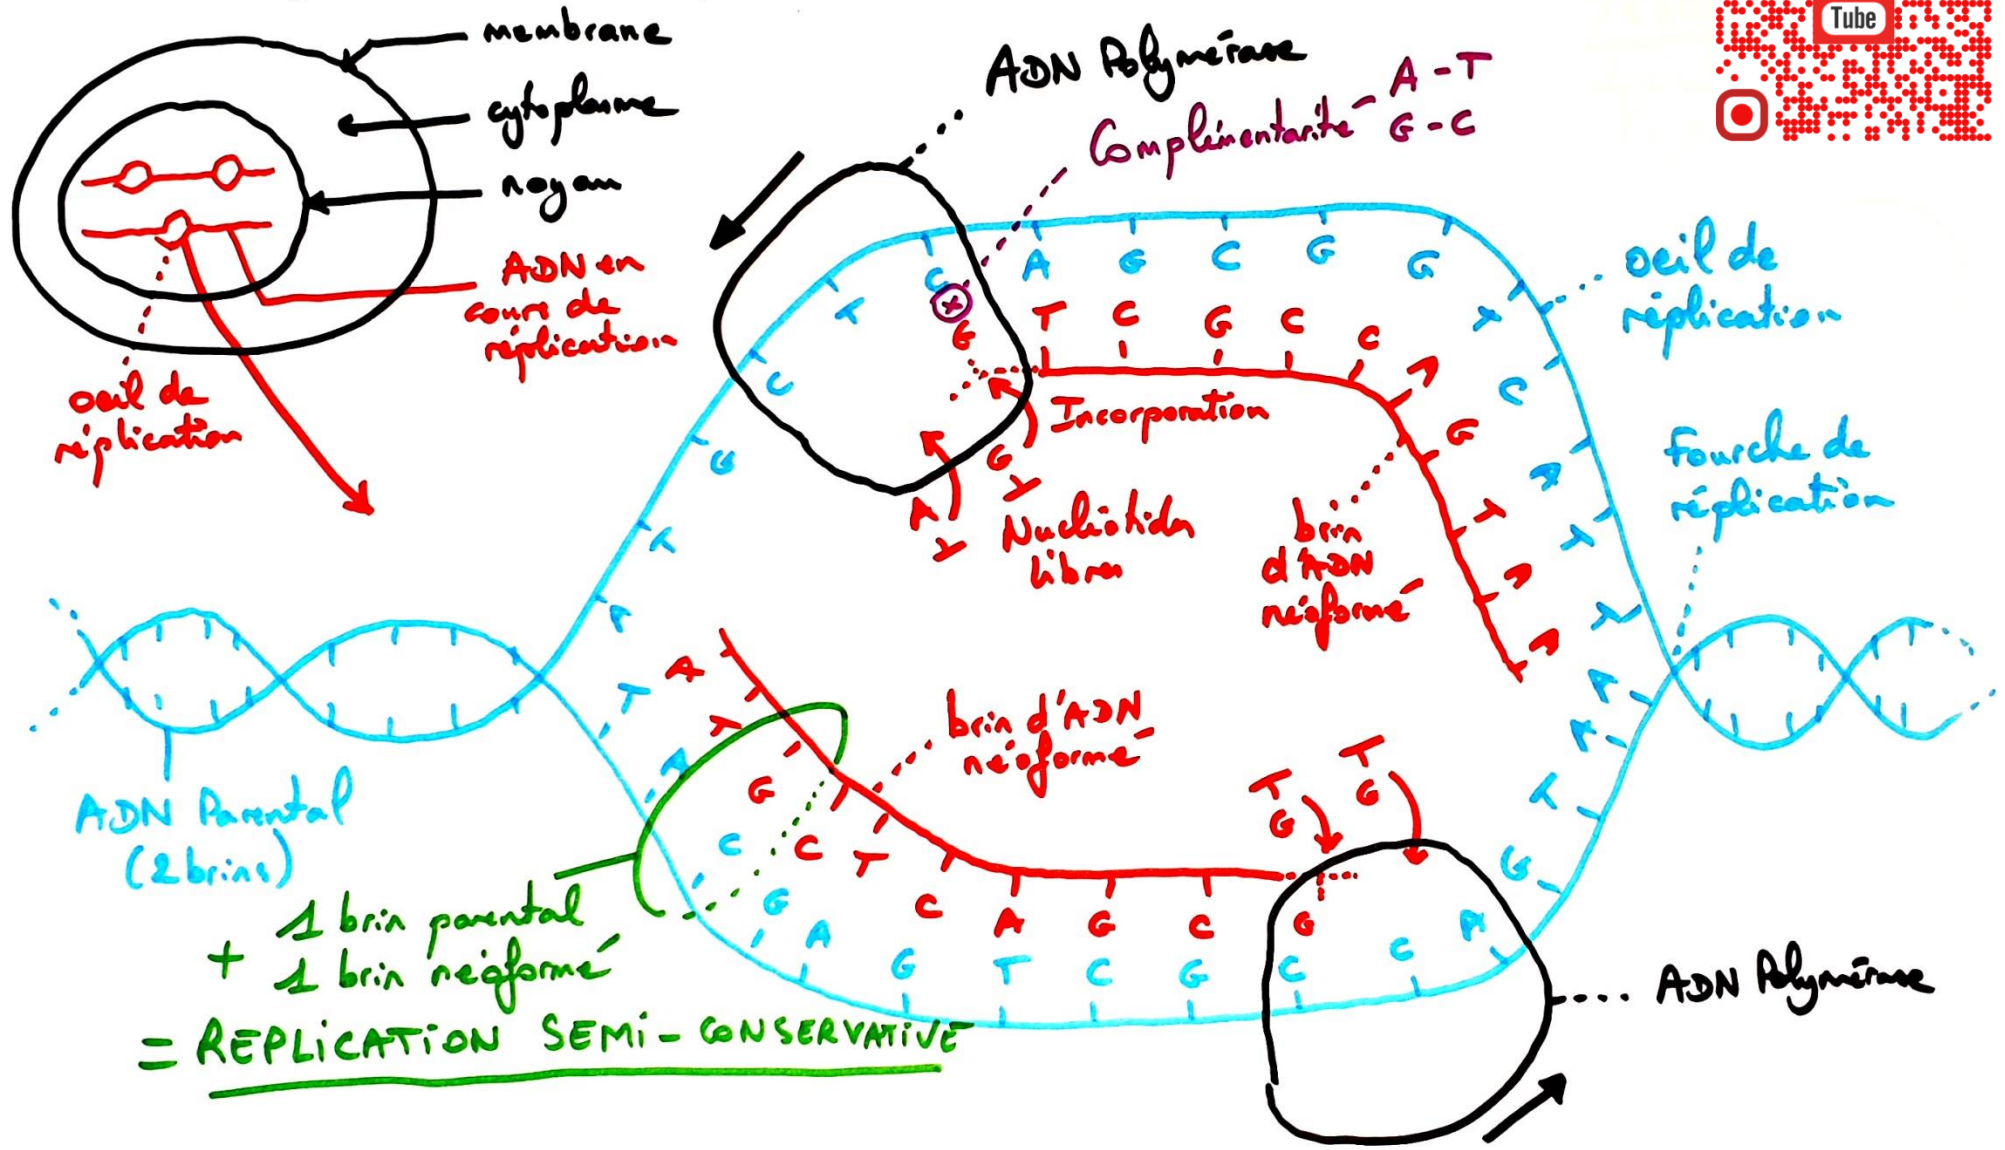 membrane
cytoplasme
noyau
ADN en
cours de
réplication
oeil de
réplication
ADN Polymérase
Complémentarité
A - T
G - C
Tube
oeil de
réplication
Fourche de
réplication
C A G C G G
T C G C C
G
Incorporation
Nucléotides
libres
brin
d'ADN
néoformé
brin d'ADN
néoformé
ADN Parental
(2 brins)
1 brin parental
+ 1 brin néoformé
= REPLICATION SEMI-CONSERVATIVE
T G
T G
C T C A G C G
C G A G T C G C C A
ADN Polymérase